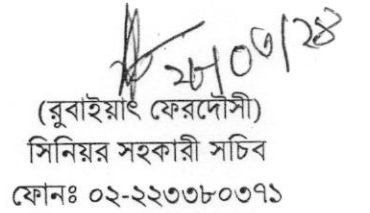 (রুবাইয়াৎ ফেরদৌসী)
সিনিয়র সহকারী সচিব
ফোনঃ ০২-২২৩৩৮০৩৭১